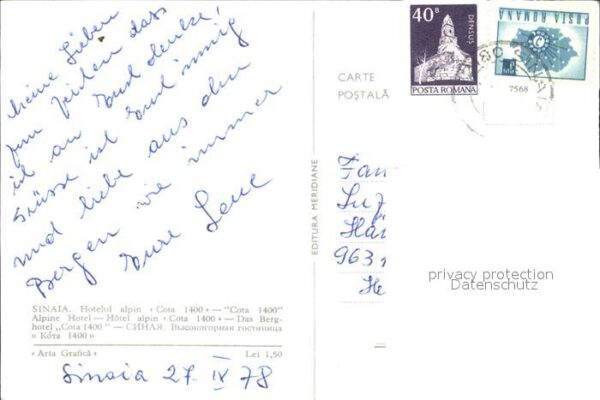 Meine Lieben
zum Zeichen dass
ich an Euch denke!
Grüsse ich Euch innig
und liebe aus den
Bergen wie immer
Eure
SINAIA. Hotelul alpin « Cota 1400 » — "Cota 1400"
Alpine Hotel — Hôtel alpin « Cota 1400 » — Das Berg-
hotel „Cota 1400" — СИНАЯ. Высокогорная гостиница
« Кота 1400 »
« Arta Grafică »    Lei 1,50
Sinaia 27. IX 78
EDITURA MERIDIANE
CARTE
POŞTALĂ
40 B
DENSUŞ
POSTA ROMANA
POSTA ROMANA
7568
Fam
Luz
963
He
privacy protection
Datenschutz